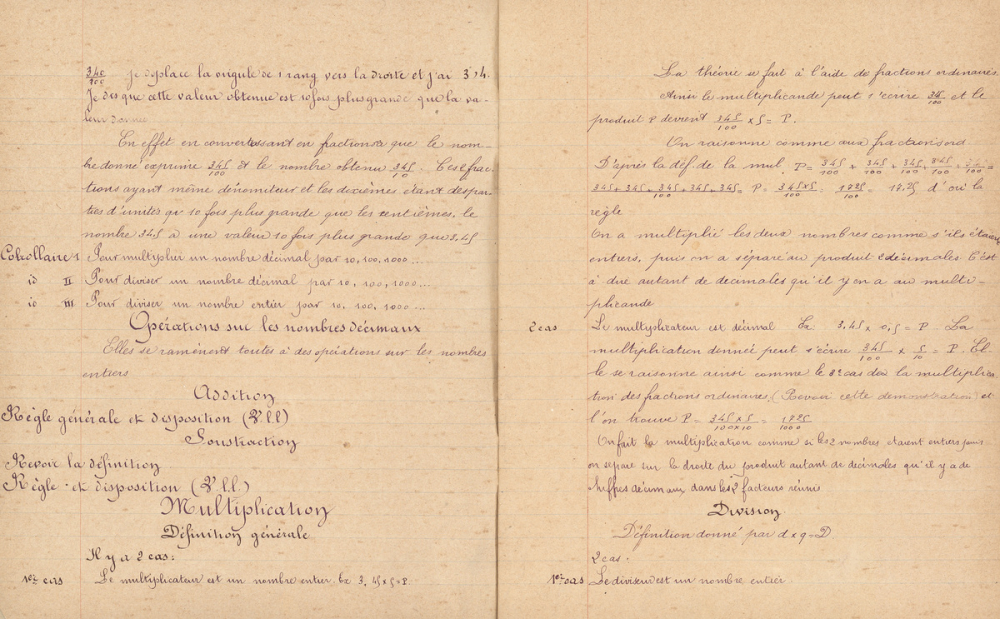 345/100 Je déplace la virgule de 1 rang vers la droite et j'ai 34,
Je dis que cette valeur obtenue est 10 fois plus grande que la va-
leur donnée
En effet en convertissant en fractions que le nom-
bre donné exprime 345/100 et le nombre obtenu 345/10. Ces frac-
tions ayant même dénominteur et les dixièmes étant des par-
ties d'unités qu 10 fois plus grande que les centièmes, le
nombre 34,5 a une valeur 10 fois plus grande que 3,45
Corollaire 1 Pour multiplier un nombre décimal par 10, 100, 1000...
id II Pour diviser un nombre décimal par 10, 100, 1000...
id III Pour diviser un nombre entier par 10, 100, 1000...
Opérations sur les nombres décimaux
Elles se ramènent toutes à des opérations sur les nombres
entiers
Addition
Règle générale et disposition (V. l.l)
Soustraction
Revoir la définition
Règle et disposition (V. l.l.)
Multiplication
Définition générale
Il y a 2 cas:
1er cas Le multiplicateur est un nombre entier. Ex 3,45 x 5 = P
La théorie se fait à l'aide de fractions ordinaires
Ainsi le multiplicande peut s'écrire 345/100 et le
produit P devient 345/100 x 5 = P.
On raisonne comme aux fractions ord
D'après la déf. de la mul. P = 345/100 + 345/100 + 345/100 + 345/100 + 345/100 =
345 + 345 + 345 + 345 + 345/100 P = 345 x 5/100 1725/100 = 17,25 d'où la
règle
On a multiplié les deux nombres comme s'ils étaient
entiers, puis on a séparé au produit 2 décimales. C'est
à dire autant de decimales qu'il y en a au multi-
plicande
2 cas Le multiplicateur est décimal Ex 3,45 x 0,5 = P. La
multiplication donnée peut s'écrire 345/100 x 5/10 = P. El-
le se raisonne ainsi comme le 3e cas de la multiplica
tion des fractions ordinaires, (Revoir cette demonstration) et
l'on trouve P = 345 x 5/100 x 10 = 1725/1000
On fait la multiplication comme si les 2 nombres étaient entiers puis
on separe sur la droite du produit autant de decimales qu'il y a de
chiffres décimaux dans les 2 facteurs réunis
Division
Définition donné par d x q = D
2 cas.
1er cas Le diviseur est un nombre entier